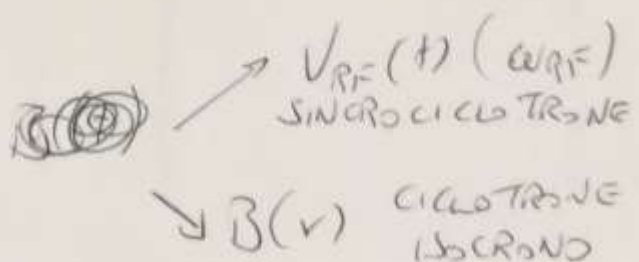 V_RF(t) (ω_RF)
SINCROCICLOTRONE
B(r) CICLOTRONE
ISOCRONO